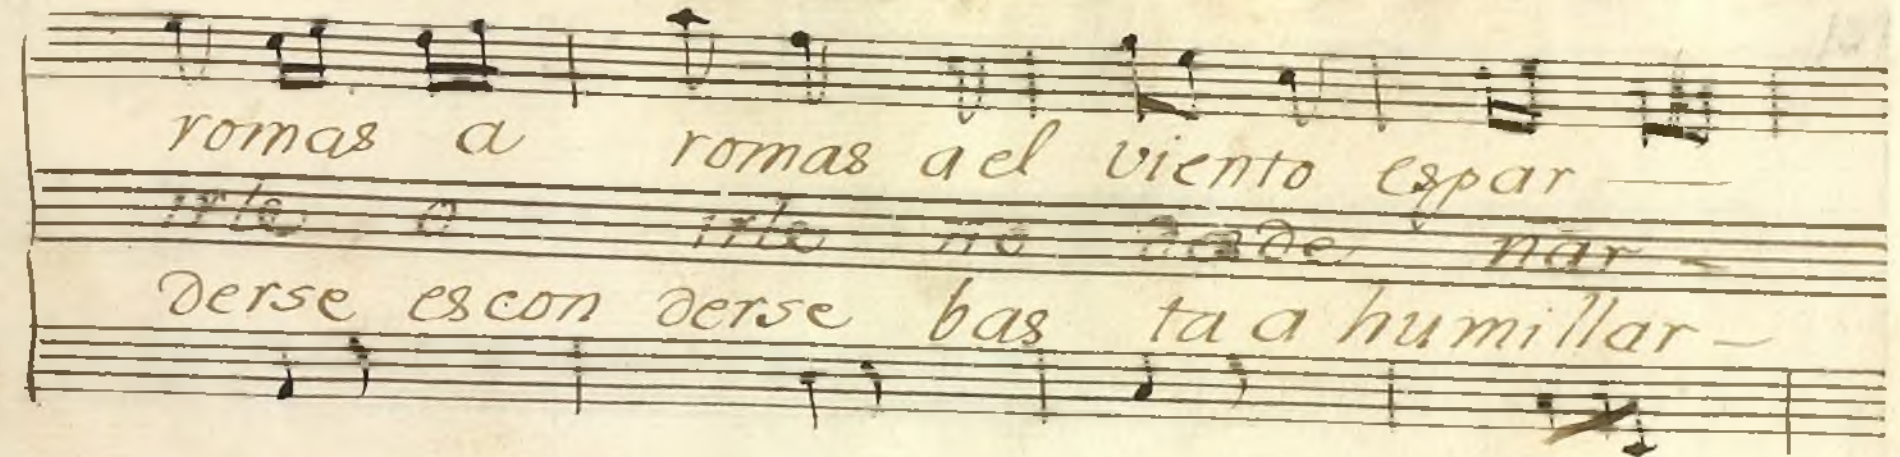 romas a romas a el viento espar —
irle o irle no nar -
derse escon derse bas ta a humillar -